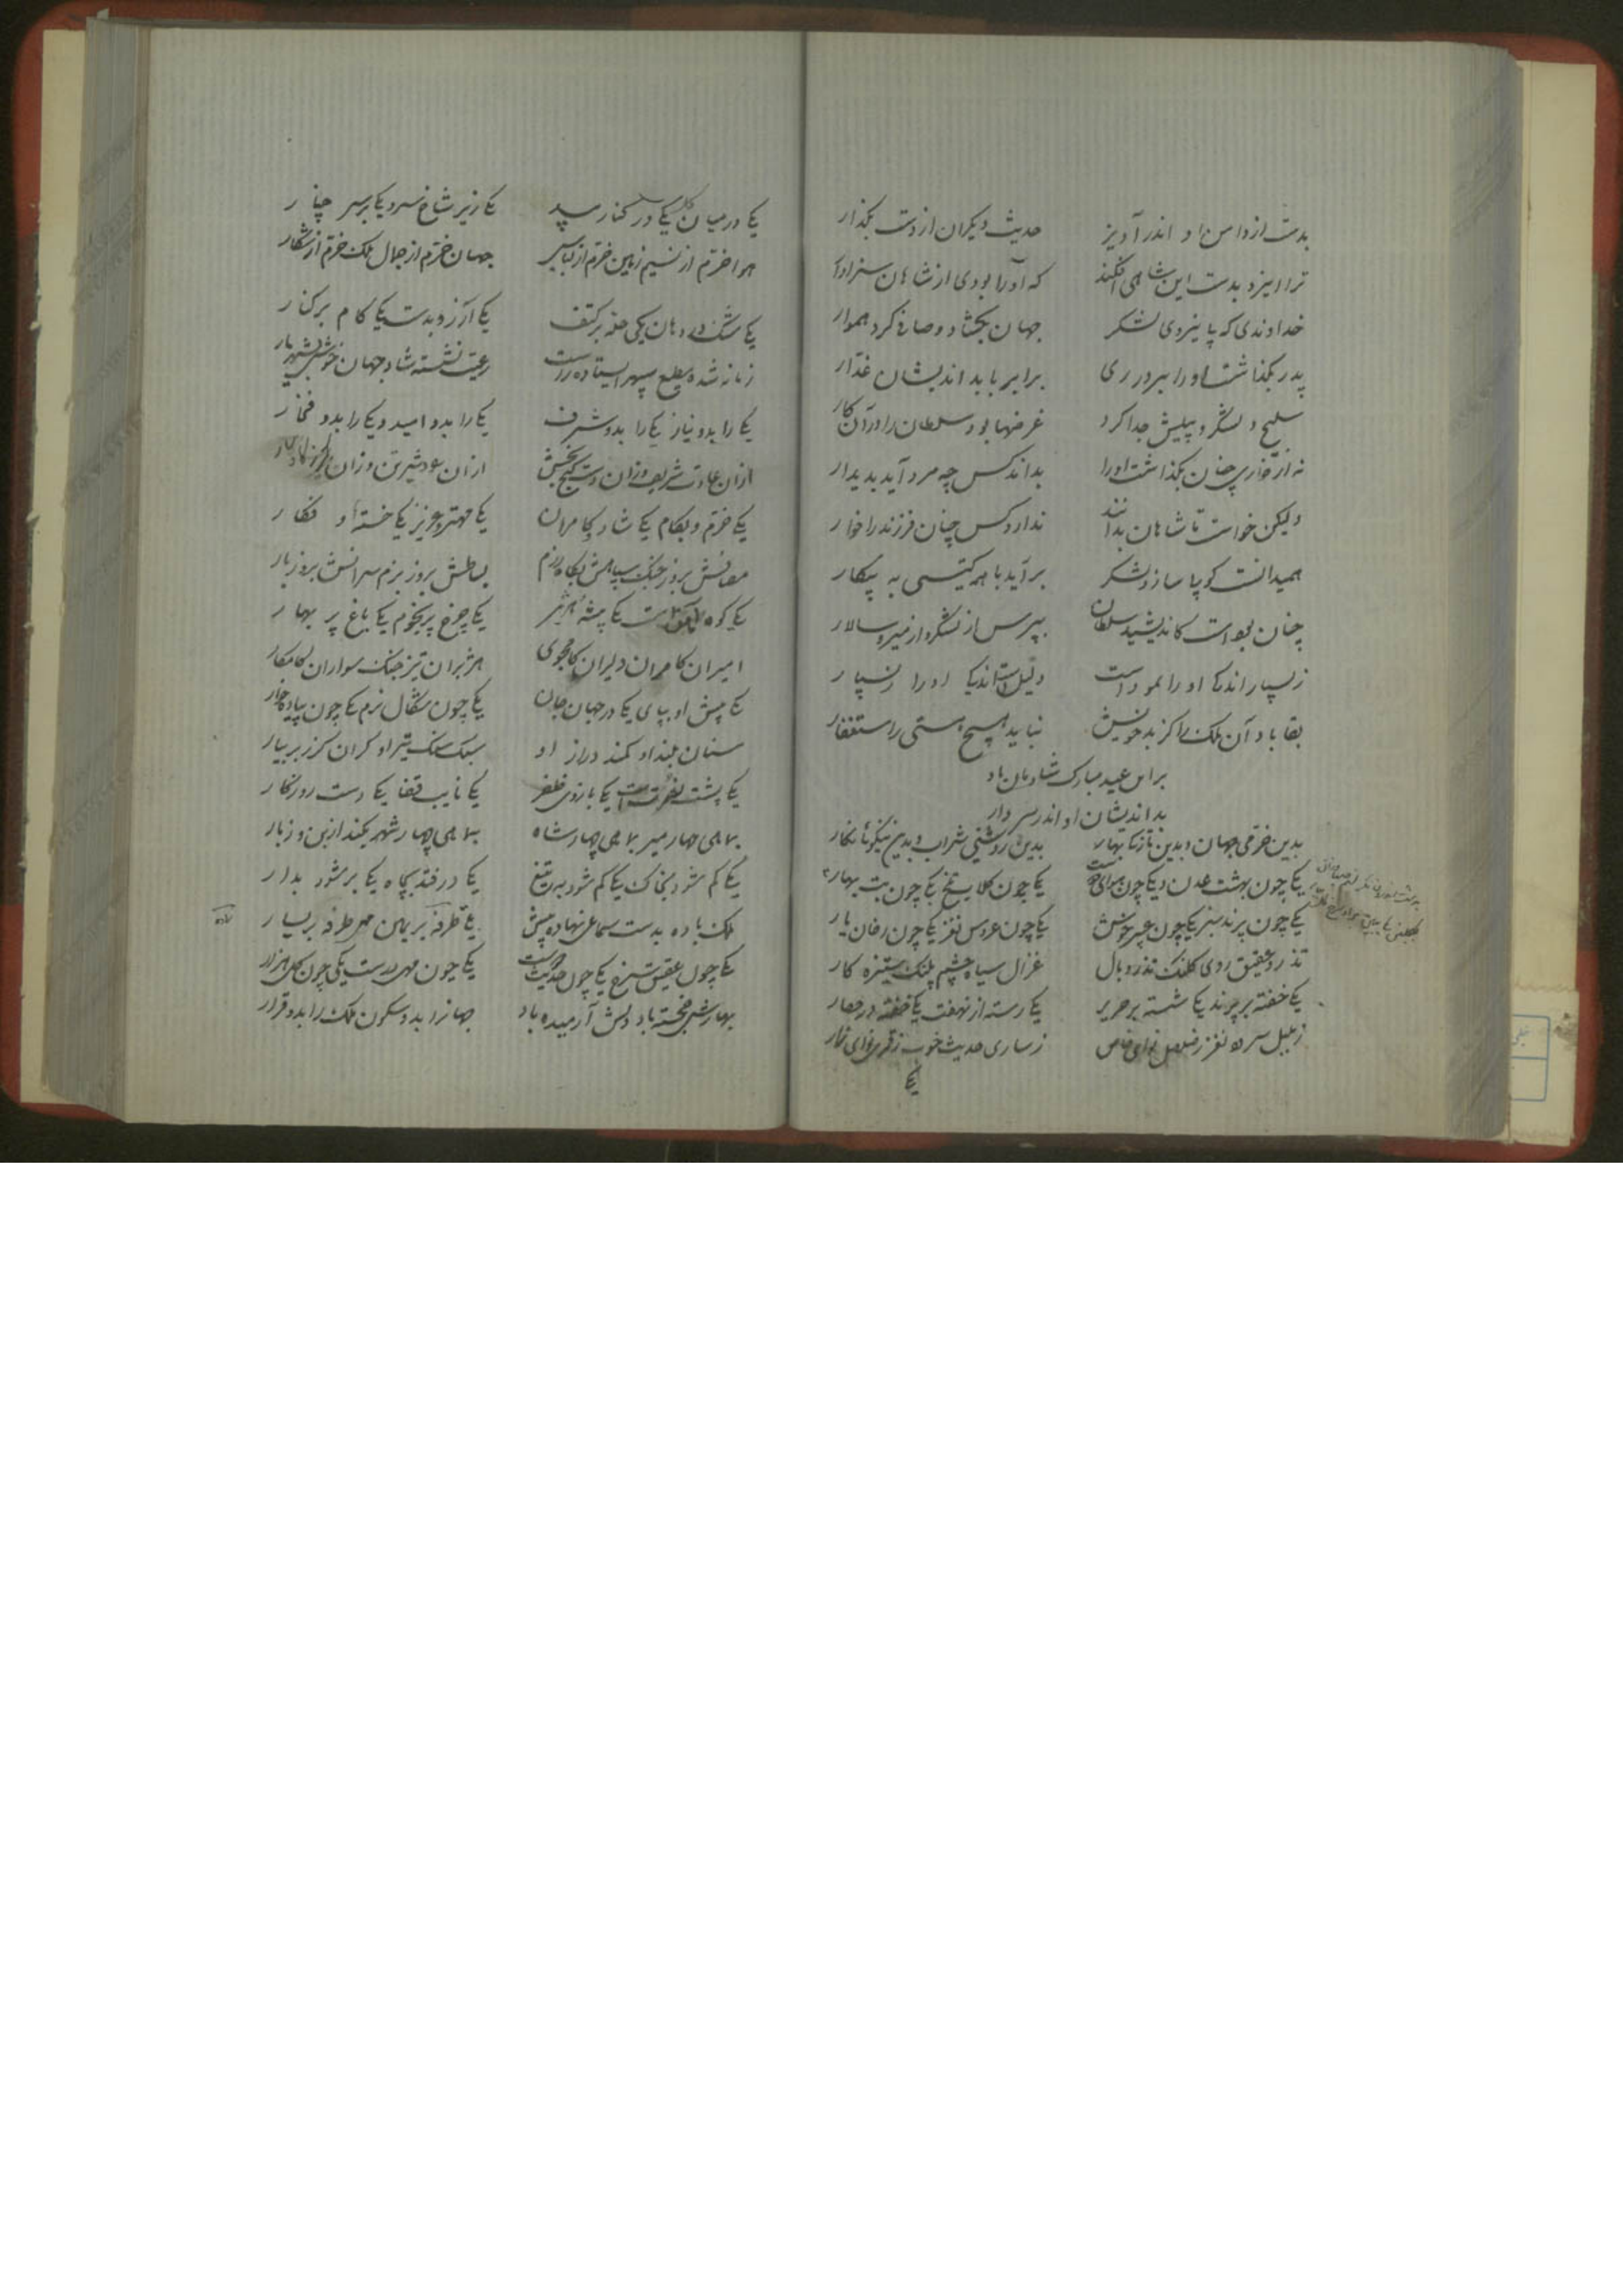 بدست ازدامن او اندر آویز حدیث دیکران ازدست بکذار
ترا ایزد بدست این شاهی افکند که اورا بودی ازشاهان سزاوار
خداوندی که با نیروی لشکر جهان بکشاد و صافی کرد هموار
پدر بکذاشت اورا بر در ری برابر با بد اندیشان غدار
سلیح و لشکر و پیلش جدا کرد غرضها بود سلطان را در آن کار
نه از خواری چنان بکذاشت اورا بداند کس چه مرد آید بدیدار
ولیکن خواست تا شاهان بدانند ندارد کس چنان فرزند را خوار
همیدانست کو با ساز و لشکر برآید با همه کیتی به پیکار
چنان بوداست کاندیشید سلطان بپرس از لشکر و از میر و سالار
زبسیار اندکی او را نمود است دلیل است اندکی او را ز بسیار
بقا باد آن ملک را کز بد خویش نباید هیچ هستی را ستغفار
براین عید مبارک شادمان باد
بداندیشان او اندر سر دار
بدین خرمی جهان و بدین تازکی بهار بدین روشنی شراب و بدین نیکوئی نکار
یکی چون بهشت عدن و یکی چون هوای دوست یکی چون کلاب بلخ یکی چون بت بهار
یکی چون پرند سبز یکی چون عبیر خوش یکی چون عروس نغز یکی چون رخان یار
تذرو عقیق روی کلنک تذرو بال غزال سیاه چشم پلنک ستیزه کار
یکی خفته بر پرند یکی شسته بر حریر یکی رسته از نهفت یکی خفته در حصار
زبلبل سرود نغز زصلصل نوای خاص زساری حدیث خوب زقمری نوای زار
یکی
یکی درمیان کل یکی در کنار بید یکی زیر شاخ سرو یکی بر سر چنار
هوا خرم از نسیم زمین خرم از لباس جهان خرم از جمال ملک خرم از شکار
یکی مشک در دهان یکی حله بر کتف یکی آرزو بدست یکی کام بر کنار
زمانه شده مطیع سپهر ایستاده راست رعیت نشسته شاد جهان خوش بشهریار
یکی را بدو نیاز یکی را بدو شرف یکی را بدو امید و یکی را بدو فخار
ازان عادت شریف وزان دست کنج بخش ازان
یکی خرم و بکام یکی شاد و کامران یکی مهتر و عزیز یکی خسته و فکار
مصافش بروز جنک سپاهش بکاه رزم بساطش بروز بزم سرانش بروز بار
یکی کوه یکی بیشه هژبر یکی چرخ پر نجوم یکی باغ پر بهار
امیران کامران دلیران کامجوی هژبران تیز جنک سواران کامکار
یکی پیش او بپای یکی در جهان جهان یکی چون شکال نرم یکی چون پیاده خوار
سنان بلند او کمند دراز او سبک سنک تیر او کران کرز بر بیار
یکی پشت نصرتست یکی بازوی ظفر یکی نایب قضا یکی دست روزکار
بماهی چهار میر بماهی چهار شاه بماهی چهار شهر بکند از بن و زبار
یکی کم شود بخاک یکی کم شود به تیغ یکی درفتد بچاه یکی بر شود بدار
ملک باده بدست سماعی نهاده پیش یکی طرفه بر یمین مهی طرفه بر یسار
یکی چون عقیق سرخ یکی چون حدیث دوست یکی چون مهی درست یکی چون کل ببار
بهارش خجسته باد دلش آرمیده باد جهانرا بدو سکون ملک را بدو قرار